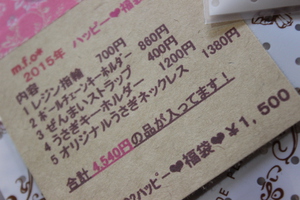 m.f.o*
2015年 ハッピー♥福袋
内容
1 レジン指輪 700円
2 ボールチェーンキーホルダー 860円
3 ぜんまいストラップ 400円
4 うさぎキーホルダー 1200円
5 オリジナルうさぎネックレス 1380円
合計 4,540円の品が入ってます!
ハッピー♥福袋♥¥1,500